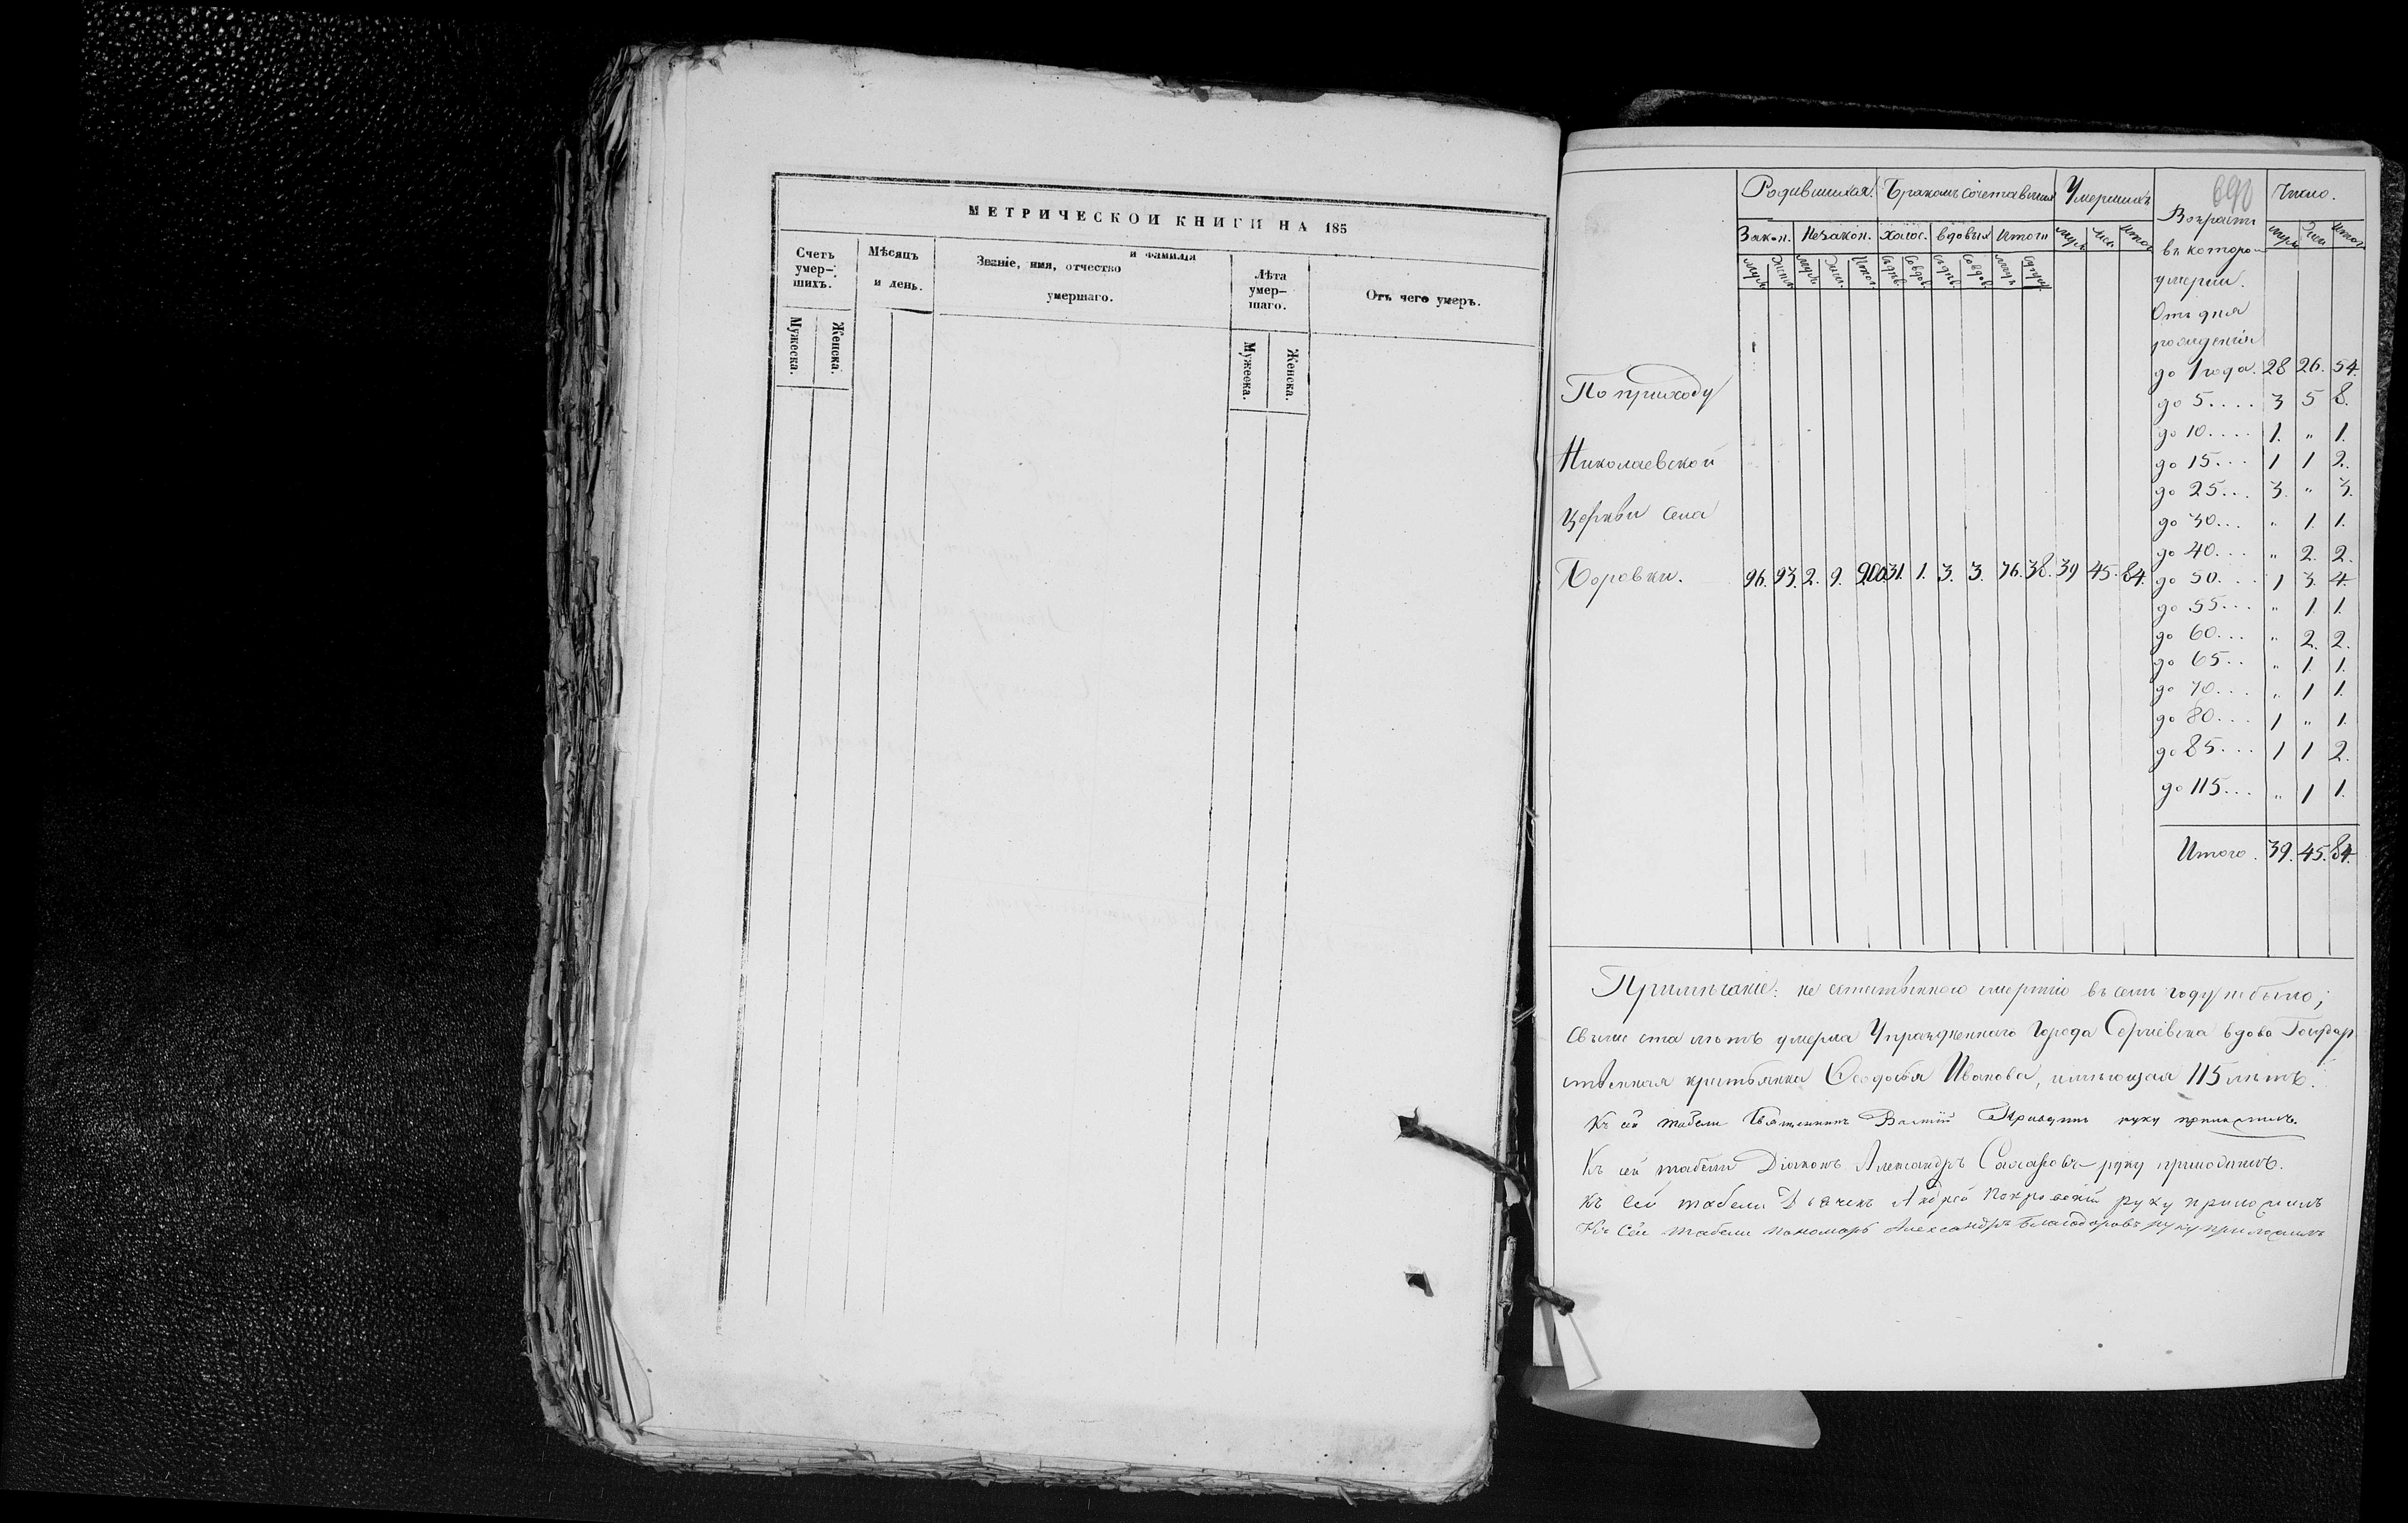 МЕТРИЧЕСКОЙ КНИГИ НА 185
Счетъ умер-шихъ.
Мѣсяцъ и день.
Званіе, имя, отчество и фамилія умершаго.
Лѣта умер-шаго.
Отъ чего умеръ.
Мужеска. Женска.
Мужеска. Женска.
690
Родившихся. Бракомъ сочетавшихся Умершихъ Возрастъ Число.
Закон. Незакон. Холос. вдовыя Итого муж. жен. Итого
въ которо-
умерли.
Отъ дня
рожденія
до 1 года. 28 26. 54.
до 5.... 3 5 8.
до 10.... 1. " 1.
до 15... 1 1 2.
до 25... 3. " 3.
до 30... " 1. 1.
до 40... " 2. 2.
до 50... 1 3. 4.
до 55... " 1. 1.
до 60... " 2. 2.
до 65.. " 1. 1.
до 70... " 1 1.
до 80... 1 " 1.
до 85... 1 1 2.
до 115... " 1 1.
Итого. 39. 45. 84.
По приходу
Николаевской
церкви села
Боровки. 96. 93. 2. 9. 200. 31. 1. 3. 3. 76. 38. 39 45. 84.
Примѣчаніе: не естественною смертію въ семъ году не было;
свыше ста лѣтъ умерла Упраздненнаго Города Сергіевска вдова Государ
ственная крестьянка Ѳеодосья Иванова, имѣющая 115 лѣтъ.
Къ сей табели Священникъ руку приложилъ.
Къ сей табели Діаконъ Александръ руку приложилъ.
Къ сей табели Дьячекъ Андрей Покровскій руку приложилъ
Къ сей табели Пономарь Александръ Благодаровъ руку приложилъ